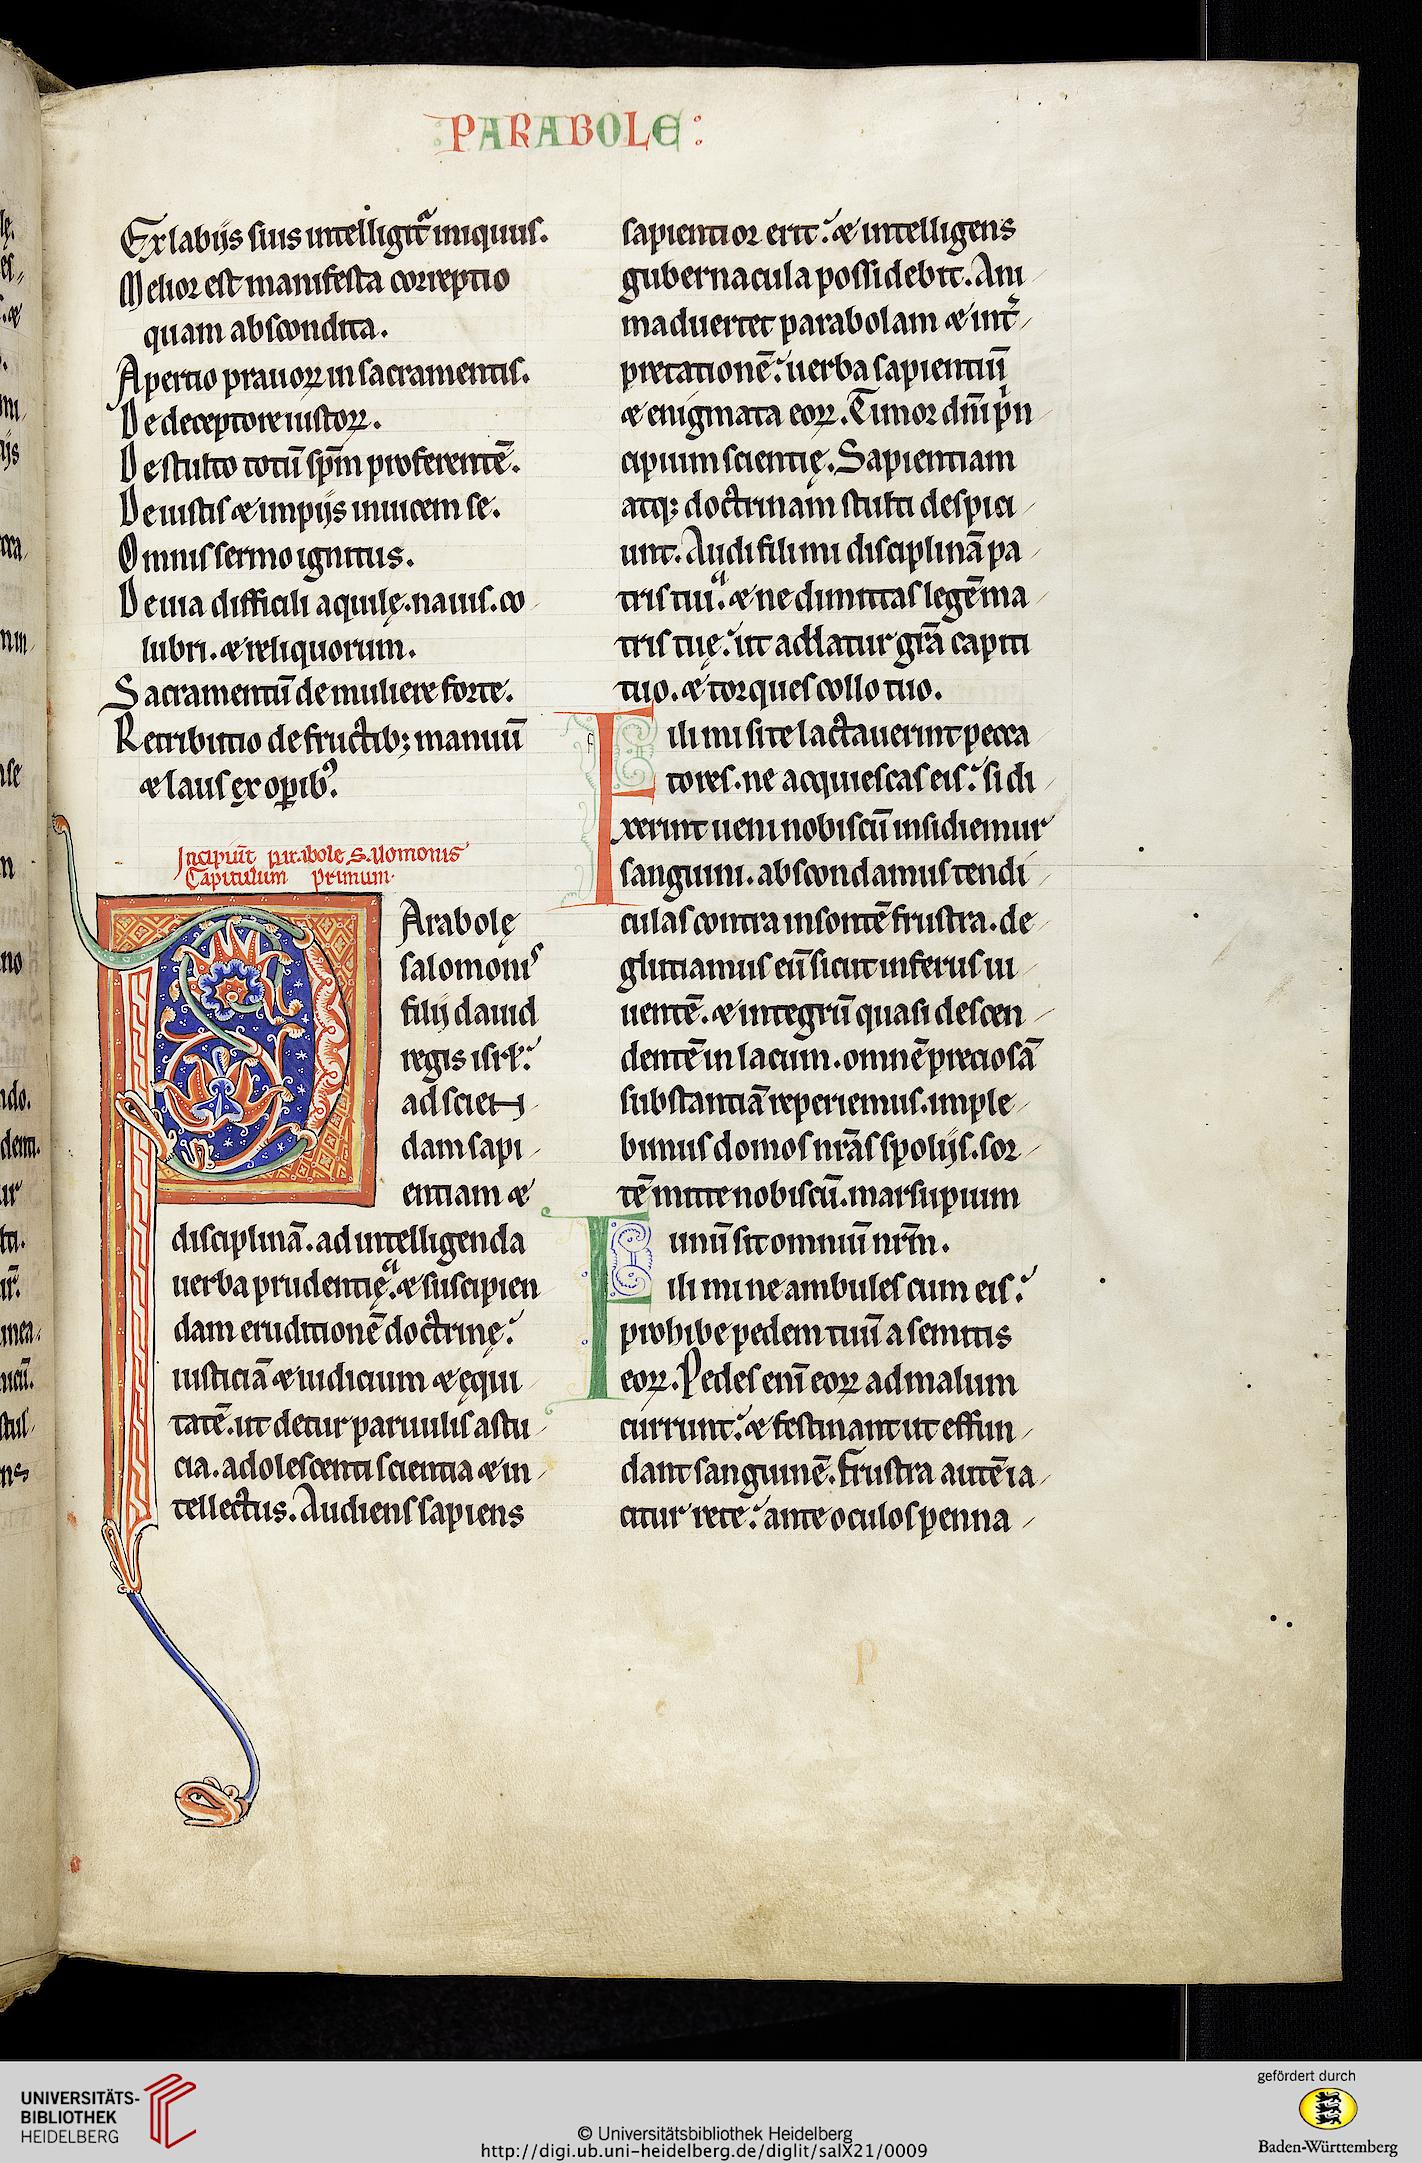 PARABOLE:
Ex labiis suis intelligit͛ iniquus.
Melior est manifesta correptio
quam abscondita.
Apertio prauoꝝ in sacramentis.
De deceptore iustoꝝ.
De stulto totū sp̄m proferentē.
De iustis & impiis inuicem se.
Omnis sermo ignitus.
De uia difficili aquilę. nauis. co
lubri. & reliquorum.
Sacramentū de muliere forte.
Retributio de fructib; manuū
& laus ex oꝑib᾿.
Incipiūt parabole Salomonis
Capitulum primum.
PArabolę
salomonis
filii dauid
regis isrł:
ad scien
dam sapi-
entiam &
disciplinā. ad intelligenda
uerba prudentię. & suscipien
dam eruditionē doctrinę:
iusticiā & iudicium & ęqui-
tatē. ut detur paruulis astu-
cia. adolescenti scientia & in-
tellectus. Audiens sapiens
sapientior erit: & intelligens
gubernacula possidebit. Ani-
maduertet parabolam & int͛-
pretationē: uerba sapientiū
& enigmata eoꝝ. Timor dn̄i p̍n-
cipium scientię. Sapientiam
atq; doctrinam stulti despici-
unt. Audi fili mi disciplinā pa-
tris tui. & ne dimittas legē ma-
tris tuę: ut addatur gr̄a capiti
tuo. & torques collo tuo.
Fili mi si te lactauerint pecca
tores. ne acquiescas eis: si di-
xerint ueni nobiscū insidiemur
sanguini. abscondamus tendi-
culas contra insontē frustra. de-
glutiamus eū sicut infernus ui-
uentē. & integrū quasi descen-
dentē in lacum. omnē preciosā
substantiā reperiemus. imple-
bimus domos nr̄as spoliis. sor-
tē mitte nobiscū. marsupium
unū sit omniū nr̄m.
Fili mi ne ambules cum eis:
prohibe pedem tuū a semitis
eoꝝ. Pedes eni eoꝝ ad malum
currunt: & festinant ut effun-
dant sanguinē. Frustra autē ia-
citur rete: ante oculos penna-
UNIVERSITÄTS-
BIBLIOTHEK
HEIDELBERG
© Universitätsbibliothek Heidelberg
http://digi.ub.uni-heidelberg.de/diglit/salX21/0009
gefördert durch
Baden-Württemberg